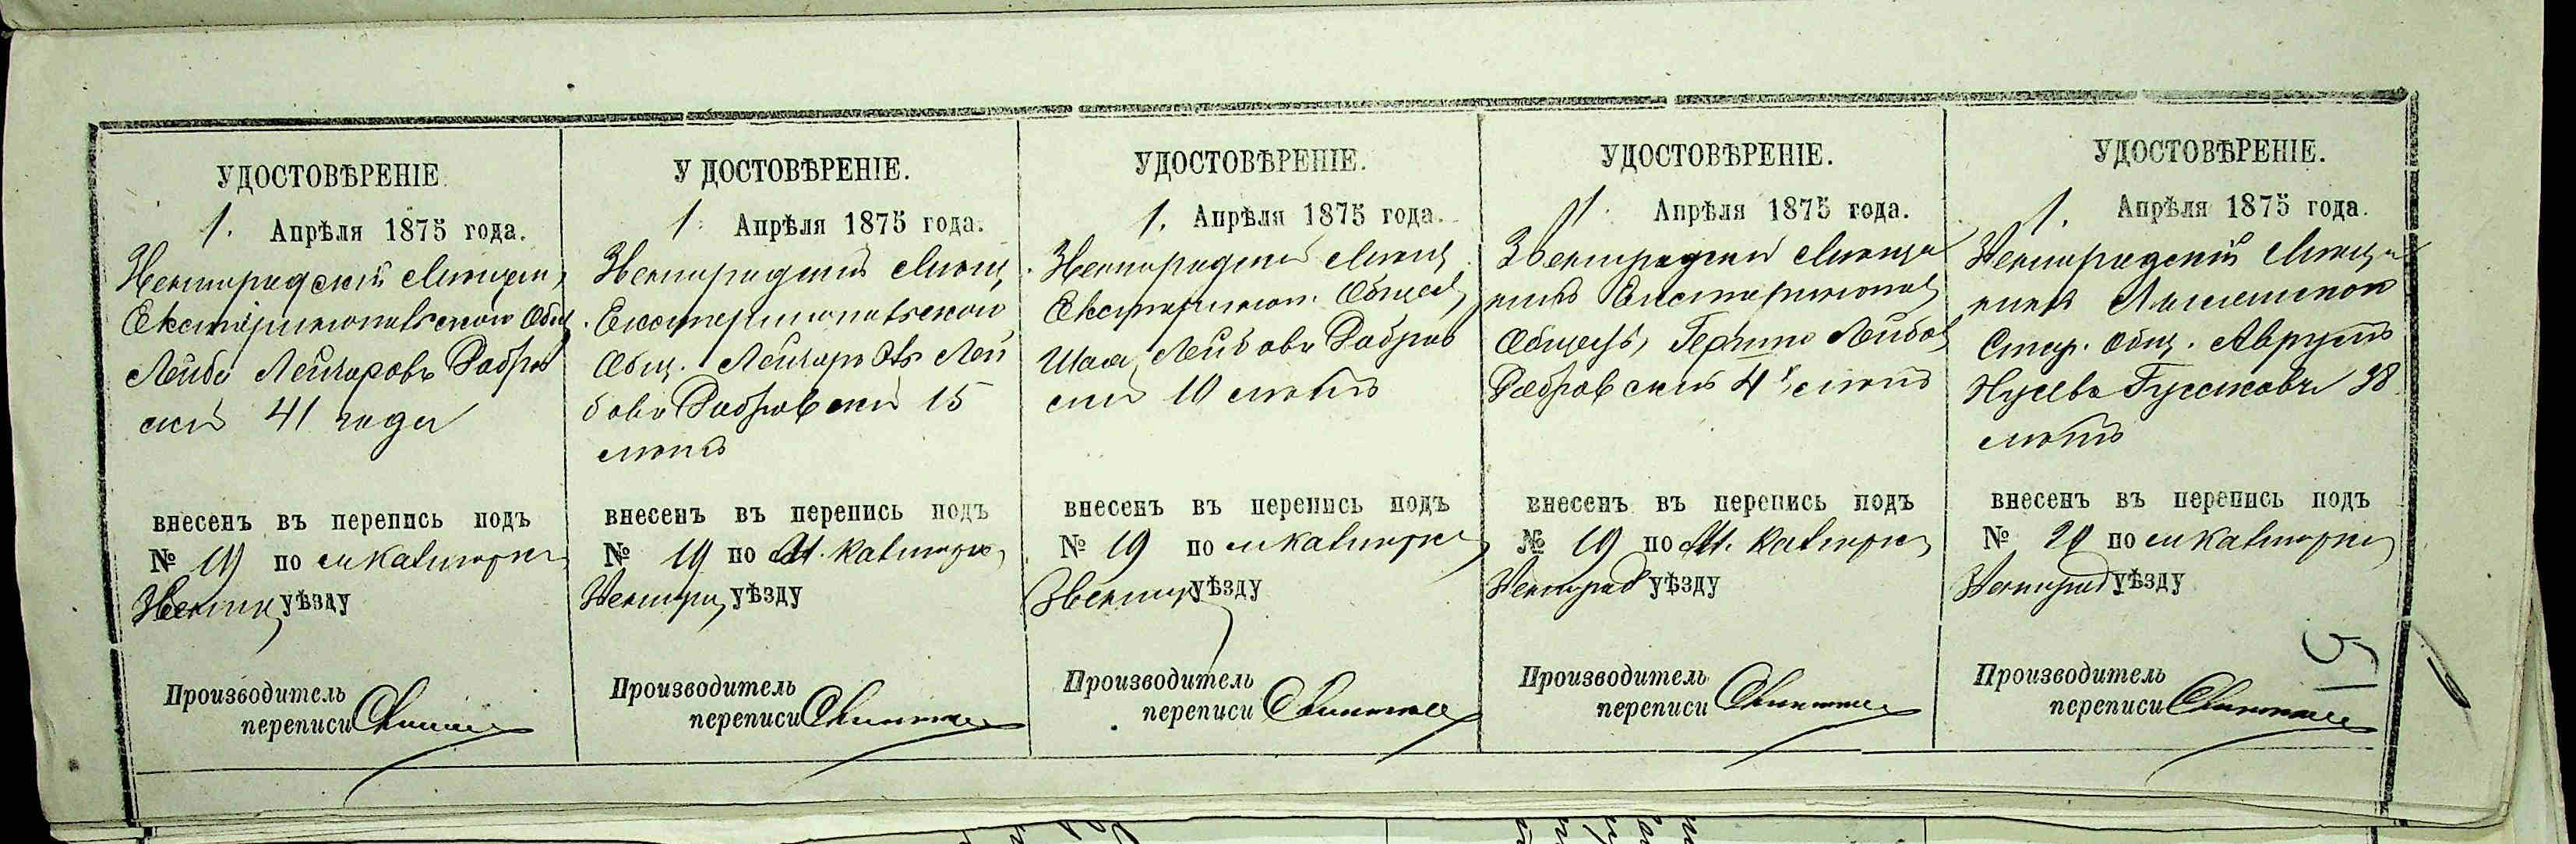 УДОСТОВѢРЕНІЕ.
1. Апрѣля 1875 года.
Звенигородскій Мѣщан,
Екатеринопольского Общ
Лейба Лейзаровъ Добров
скій 41 года
внесенъ въ перепись подъ
№ 19 по м Калигорк
Звениг уѣзду
Производитель
переписи
УДОСТОВѢРЕНІЕ.
1. Апрѣля 1875 года.
Звенигородскій Мѣщ
Екатеринопольского
Общ. Лейзаръ Лей
бовъ Добровскій 15
лѣтъ
внесенъ въ перепись подъ
№ 19 по М. Калигорк
Звенигор уѣзду
Производитель
переписи
УДОСТОВѢРЕПІЕ.
1. Апрѣля 1875 года.
Звенигородскій Мѣщ
Екатериноп. Общес
Лейбовъ Добров
скій 10 лѣтъ
внесенъ въ перепись подъ
№ 19 по м Калигорк
Звениг уѣзду
Производитель
переписи
УДОСТОВѢРЕНІЕ.
1. Апрѣля 1875 года.
Звенигородскій Мѣща
нинъ Екатеринопол
Общесъ, Гершко Лейбов
Добровскій 4х лѣтъ
внесенъ въ перепись подъ
№ 19 по М. Калигорк
Звенигород уѣзду
Производитель
переписи
УДОСТОВѢРЕНІЕ.
1. Апрѣля 1875 года.
Звенигородскій Мѣща
нинъ
Общ. Аврумъ
Нусевъ 38
лѣтъ
внесенъ въ перепись подъ
№ 20 по м Калигорк
Звенигород уѣзду
Производитель
переписи